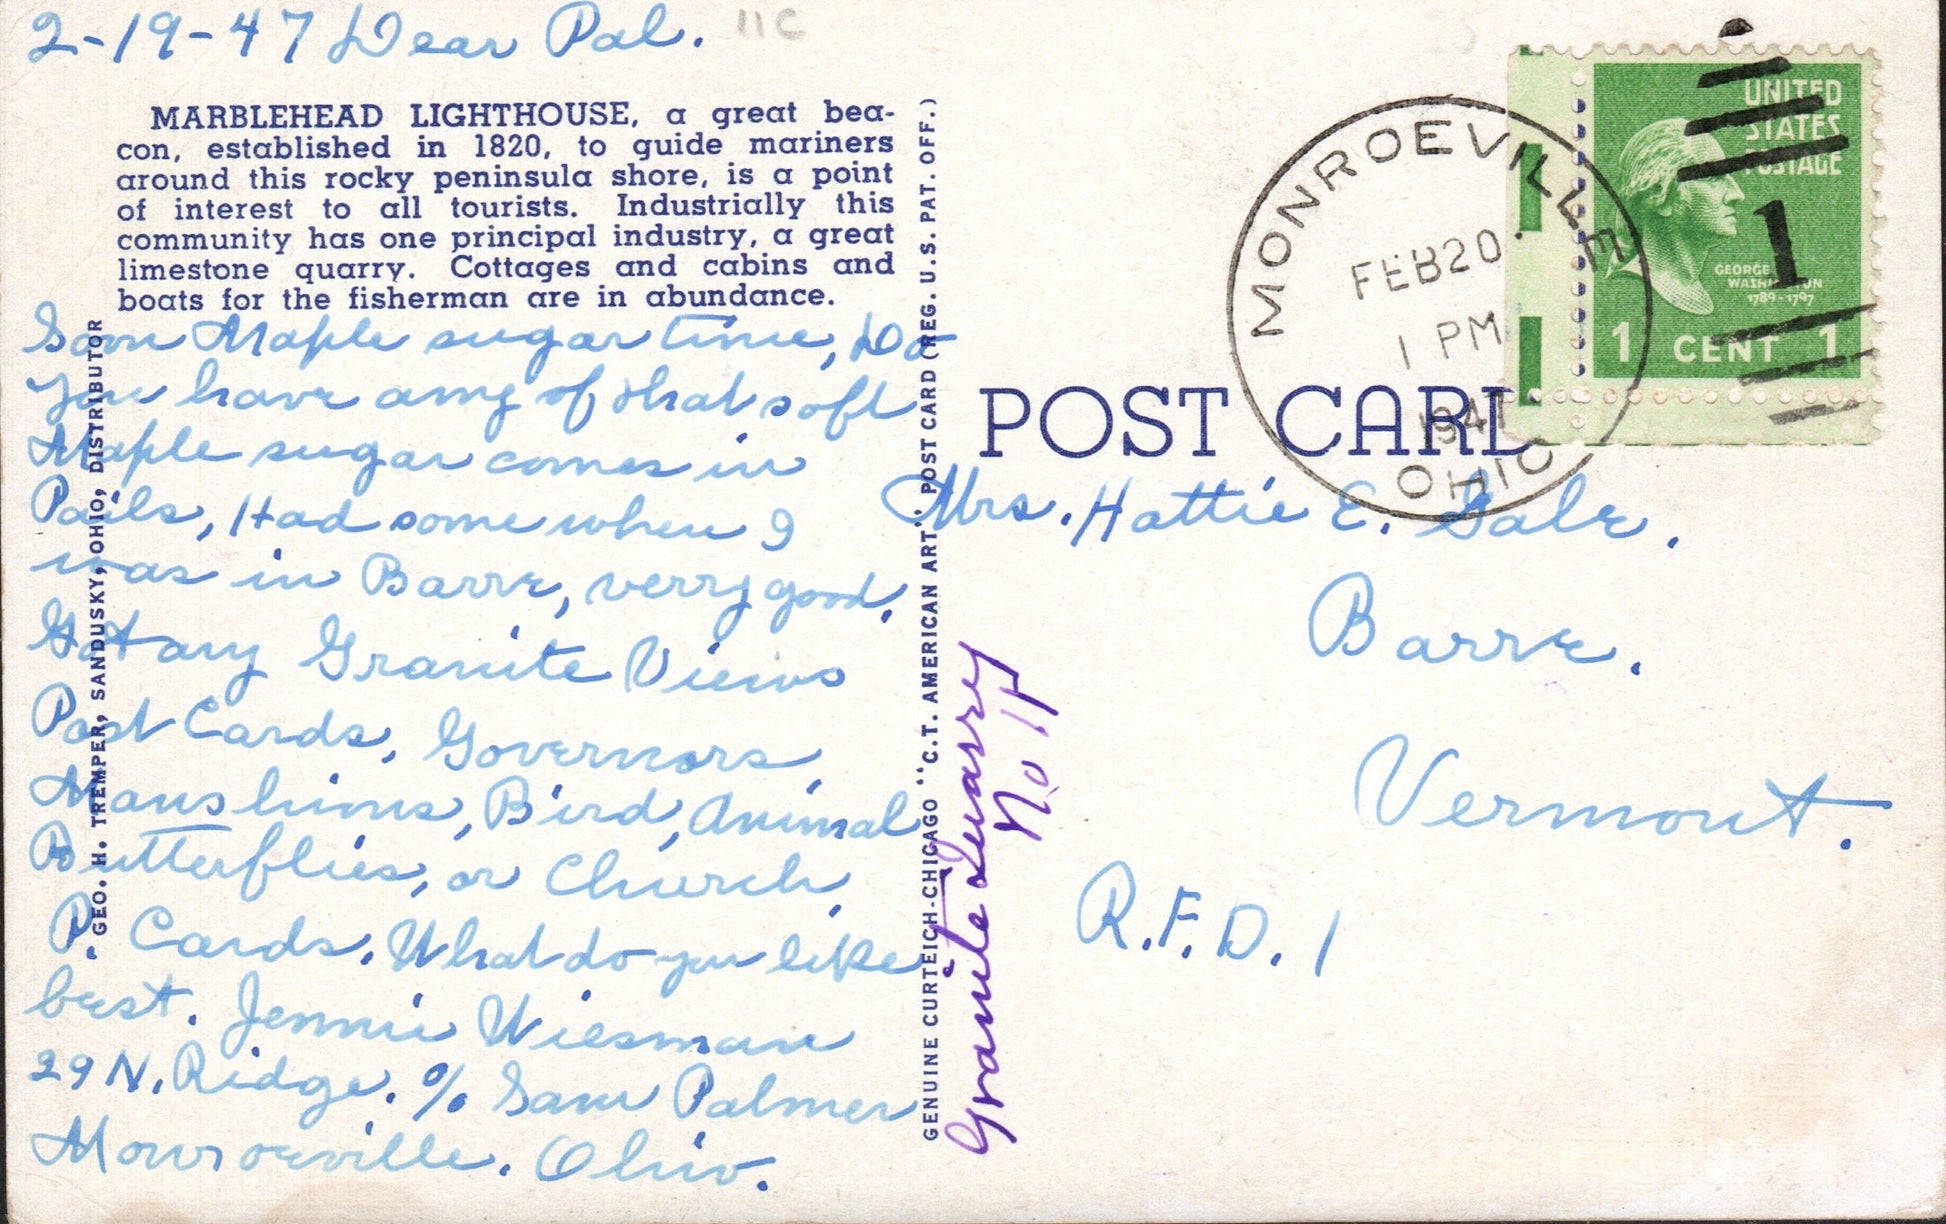 2-19-47 Dear Pal.
11C
MARBLEHEAD LIGHTHOUSE, a great bea-
con, established in 1820, to guide mariners
around this rocky peninsula shore, is a point
of interest to all tourists. Industrially this
community has one principal industry, a great
limestone quarry. Cottages and cabins and
boats for the fisherman are in abundance.
Soon Maple sugar time, Do
You have any of that soft
Maple sugar comes in
Pails, Had some when I
was in Barre, verry good.
Got any Granite Views
Post Cards, Governors,
Manshions, Bird, Animal
Butterflies, or Church,
P. Cards. What do you like
best. Jennie Wiesman
29 N. Ridge. % Sam Palmer
Monroeville. Ohio.
GEO. H. TREMPER, SANDUSKY, OHIO, DISTRIBUTOR
GENUINE CURTEICH-CHICAGO "C.T. AMERICAN ART" POST CARD (REG. U.S. PAT. OFF.)
Granite Quarry
No 14
POST CARD
MONROEVILLE
FEB 20
1 PM
1947
OHIO
UNITED
STATES
POSTAGE
1
GEORGE
WASHINGTON
1789-1797
1 CENT 1
Mrs. Hattie E. Gale.
Barre.
Vermont.
R.F.D. 1